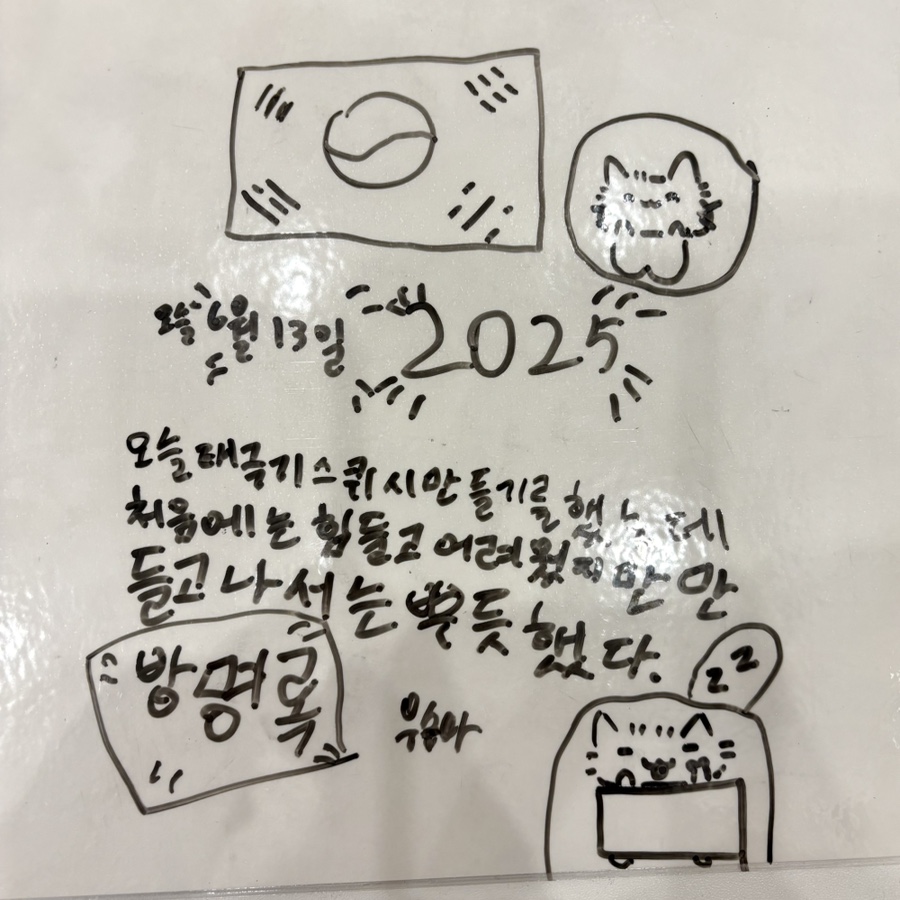 오늘 6월 13일 2025
오늘 태극기 스퀴시 만들기를 했는데
처음에는 힘들고 어려웠지만 만
들고 나서는 뿌듯했다.
zz
방명록